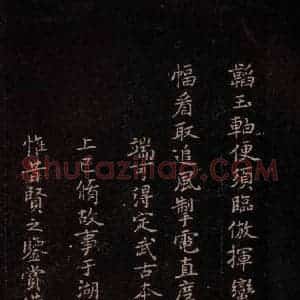 鞱玉軸便須臨倣揮鸞
幅看取追風掣電直度
端了得定武古本
上巳脩故事于湖
惟昔賢之鑒賞
Shufazidian.COM